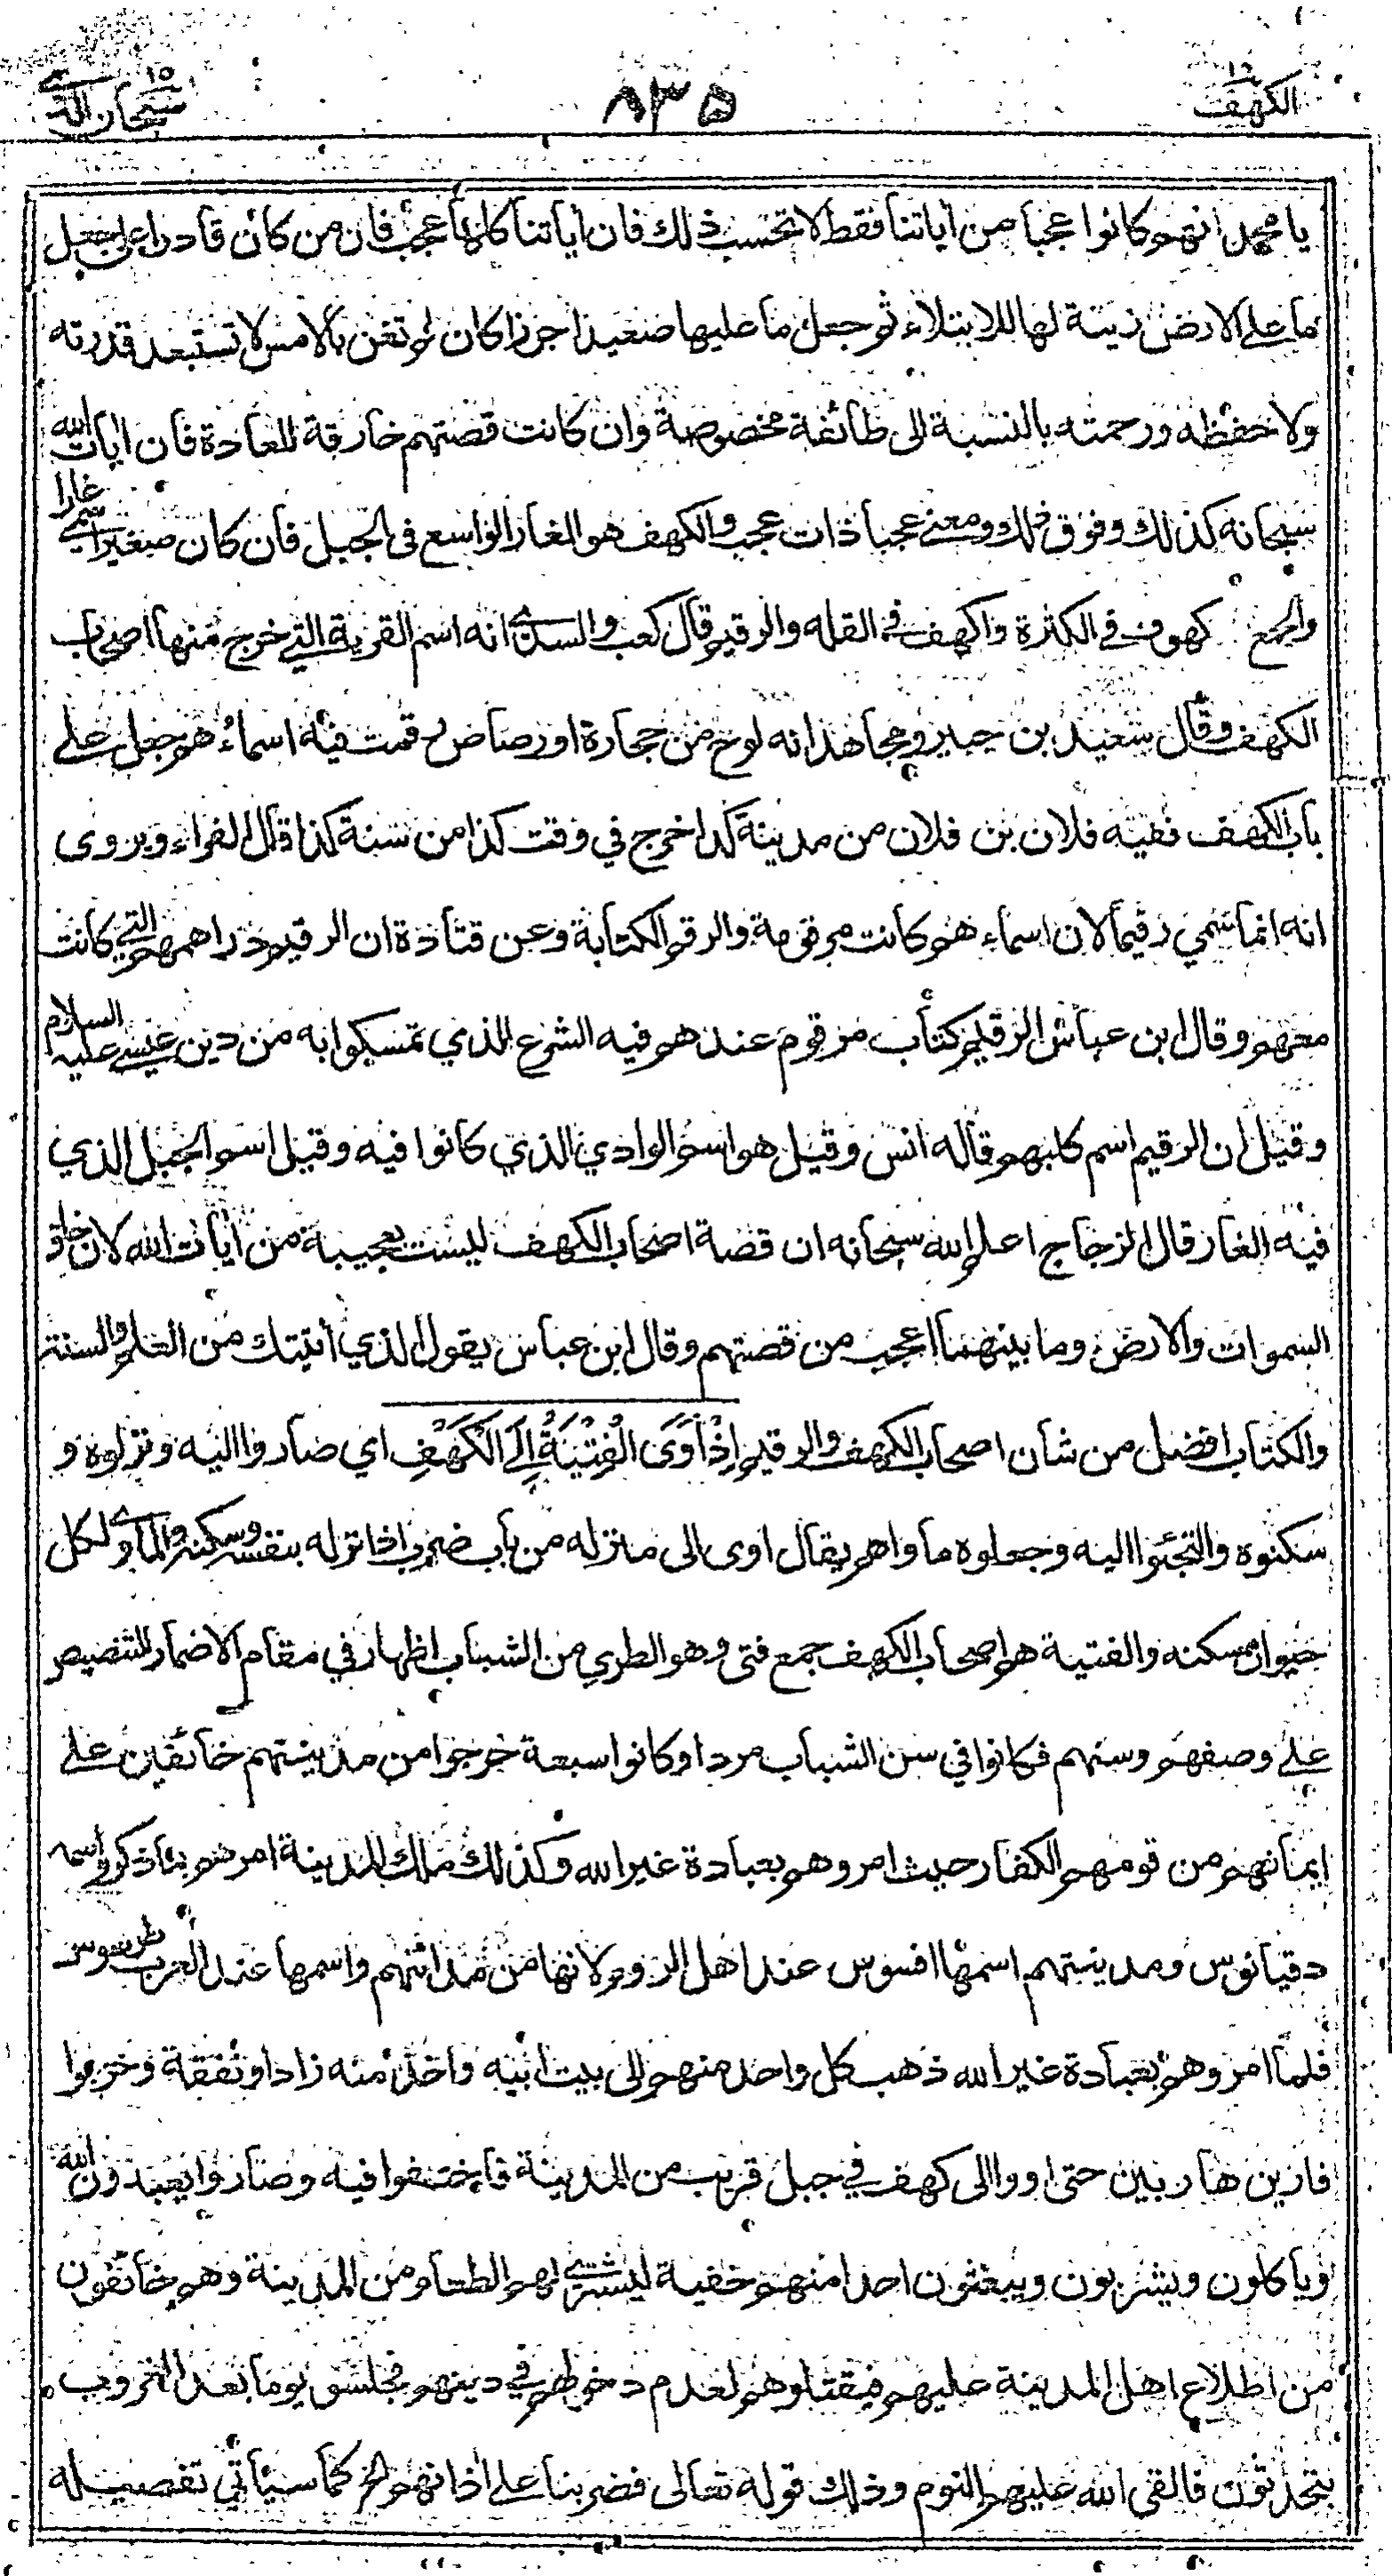 الكهف ١٨
٨٣٥
سبحان الذي ١٥
يا محمد انهم كانوا عجبا من آياتنا فقط لا تحسب ذلك فان آياتنا كلها عجب فان من كان قادرا على جعل
ما على الارض زينة لها للابتلاء ثم جعل ما عليها صعيدا جرزا كان لم تغن بالامس لا تستبعد قدرته
ولا حفظه ورحمته بالنسبة الى طائفة مخصوصة وان كانت قصتهم خارقة للعادة فان ايات الله
سبحانه كذلك وفوق ذلك ومعنى عجبا ذات عجب والكهف هو الغار الواسع في الجبل فان كان صغيرا سمي غارا
والجمع كهوف في الكثرة واكهف في القلة والرقيم قال كعب والسدي انه اسم القرية التي خرج منها اصحاب
الكهف وقال سعيد بن جبير ومجاهد انه لوح من حجارة او رصاص رقمت فيه اسماؤهم جعل على
باب الكهف نفيه فلان بن فلان من مدينة كذا خرج في وقت كذا من سنة كذا قال الفراء ويروى
انه انما سمي رقيما لان اسماءهم كانت مرقومة والرقم الكتابة وعن قتادة ان الرقيم دراهمهم التي كانت
معهم وقال ابن عباس الرقيم كتاب مرقوم عندهم فيه الشرع الذي تمسكوا به من دين عيسى عليه السلام
وقيل ان الرقيم اسم كلبهم قاله انس وقيل هو اسم الوادي الذي كانوا فيه وقيل اسم الجبل الذي
فيه الغار قال الزجاج اعلم الله سبحانه ان قصة اصحاب الكهف ليست بعجيبة من آيات الله لان خلق
السموات والارض وما بينهما اعجب من قصتهم وقال ابن عباس يقول الذي آتيتك من العلم والسنة
والكتاب افضل من شان اصحاب الكهف والرقيم إِذْ أَوَى الْفِتْيَةُ إِلَى الْكَهْفِ اي صاروا اليه ونزلوه و
سكنوه والتجئوا اليه وجعلوه ماواهم يقال اوى الى منزله من باب ضرب اذا نزله بنفسه وسكنه والماوى لكل
حيوان مسكنه والفتية هم اصحاب الكهف جمع فتى وهو الطري من الشباب اظهار في مقام الاضمار للتنصيص
على وصفهم وسنهم فكانوا في سن الشباب مردا وكانوا سبعة خرجوا من مدينتهم خائفين على
ايمانهم من قومهم الكفار حيث امروهم بعبادة غير الله وكذلك ملك المدينة امرهم بما ذكر واسمه
دقيانوس ومدينتهم اسمها افسوس عند اهل الروم لانها من مدائنهم واسمها عند العرب طرسوس
فلما امروهم بعبادة غير الله ذهب كل واحد منهم الى بيت ابيه واخذ منه زادا ونفقة وخرجوا
فارين هاربين حتى اووا الى كهف في جبل قريب من المدينة فاختفوا فيه وصاروا يعبدون الله
وياكلون ويشربون ويبعثون احدا منهم خفية ليشتري لهم الطعام من المدينة وهم خائفون
من اطلاع اهل المدينة عليهم فيقتلوهم لعدم دخولهم في دينهم فجلسوا يوما بعد الغروب
يتحدثون فالقى الله عليهم النوم وذلك قوله تعالى فضربنا على اذانهم الخ كما سيأتي تفصيله